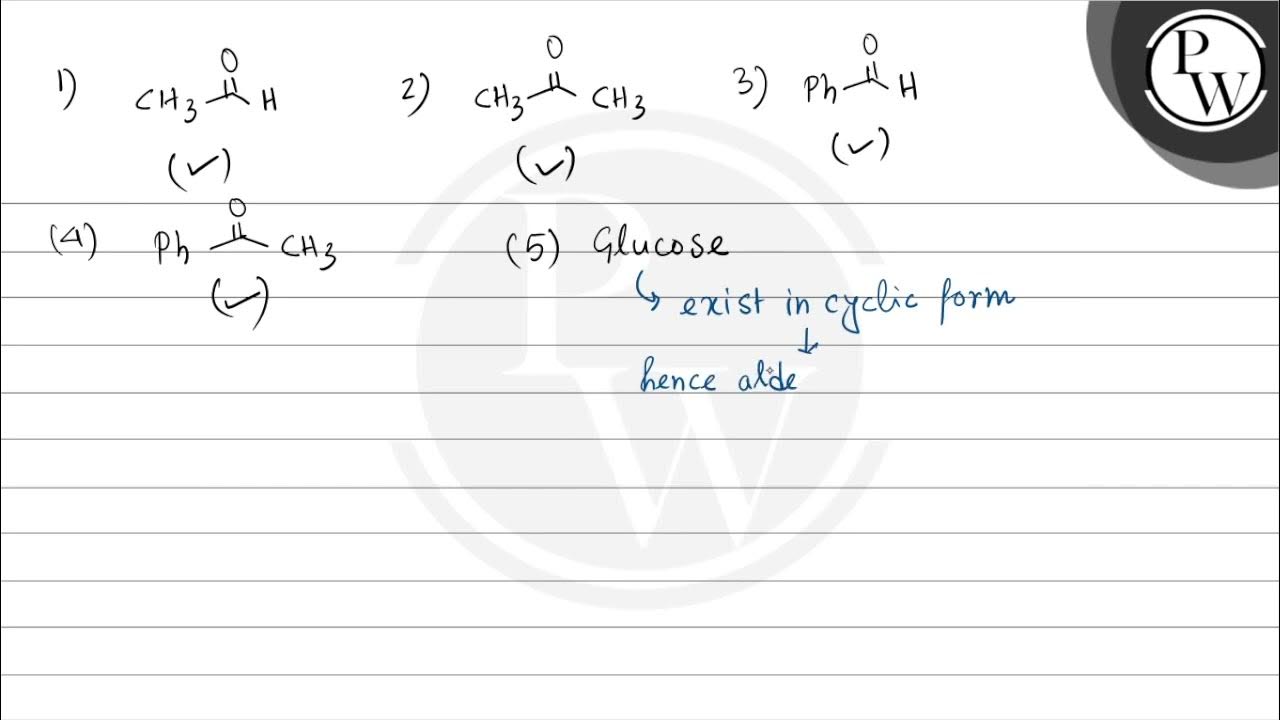 1) CH3 O H 2) CH3 O CH3 3) Ph O H
(✓) (✓) (✓)
(4) Ph O CH3 (5) Glucose
(✓)
↳ exist in cyclic form
↓
hence alde
P W
PW